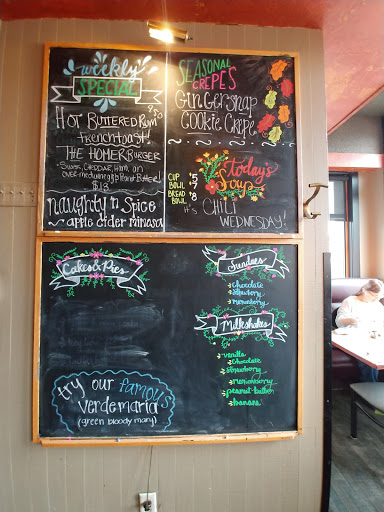 weekly
SPECIAL
HOT BUTTERED RUM
frenchtoast!
THE HOMER BURGER
$13
naughty n Spice
apple cider mimosa
SEASONAL
CREPES
GINGERSNAP
COOKIE CREPE
today's
Soup
CUP 5
BOWL 7
BREAD BOWL 8
IT'S CHILI
WEDNESDAY!
Cakes & Pies
try our famous
verdemaria
(green bloody mary)
Sundaes
chocolate
strawberry
marionberry
Milkshakes
vanilla
chocolate
strawberry
marionberry
peanut-butter
banana